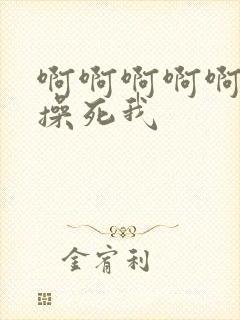 啊啊啊啊啊
操死我
金宥利